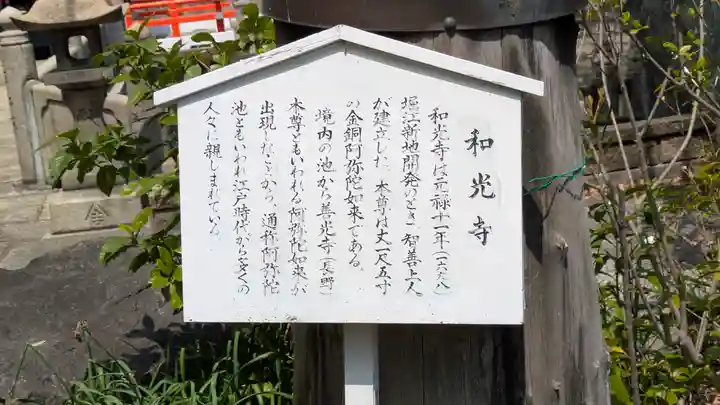 和光寺
和光寺は元禄十一年(一六九八)
堀江新地開発のとき智善上人
が建立した。本尊は丈一尺五寸
の金銅阿弥陀如来である。
境内の池から善光寺(長野)
本尊ともいわれる阿弥陀如来が
出現したことから、通称阿弥陀
池ともいわれ江戸時代から多くの
人々に親しまれている。